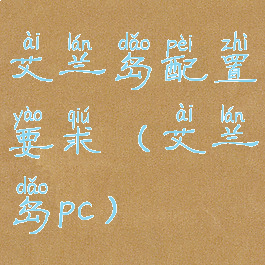 ài lán dǎo pèi zhì
艾兰岛配置
yào qiú ài lán
要求（艾兰
dǎo
岛pc）